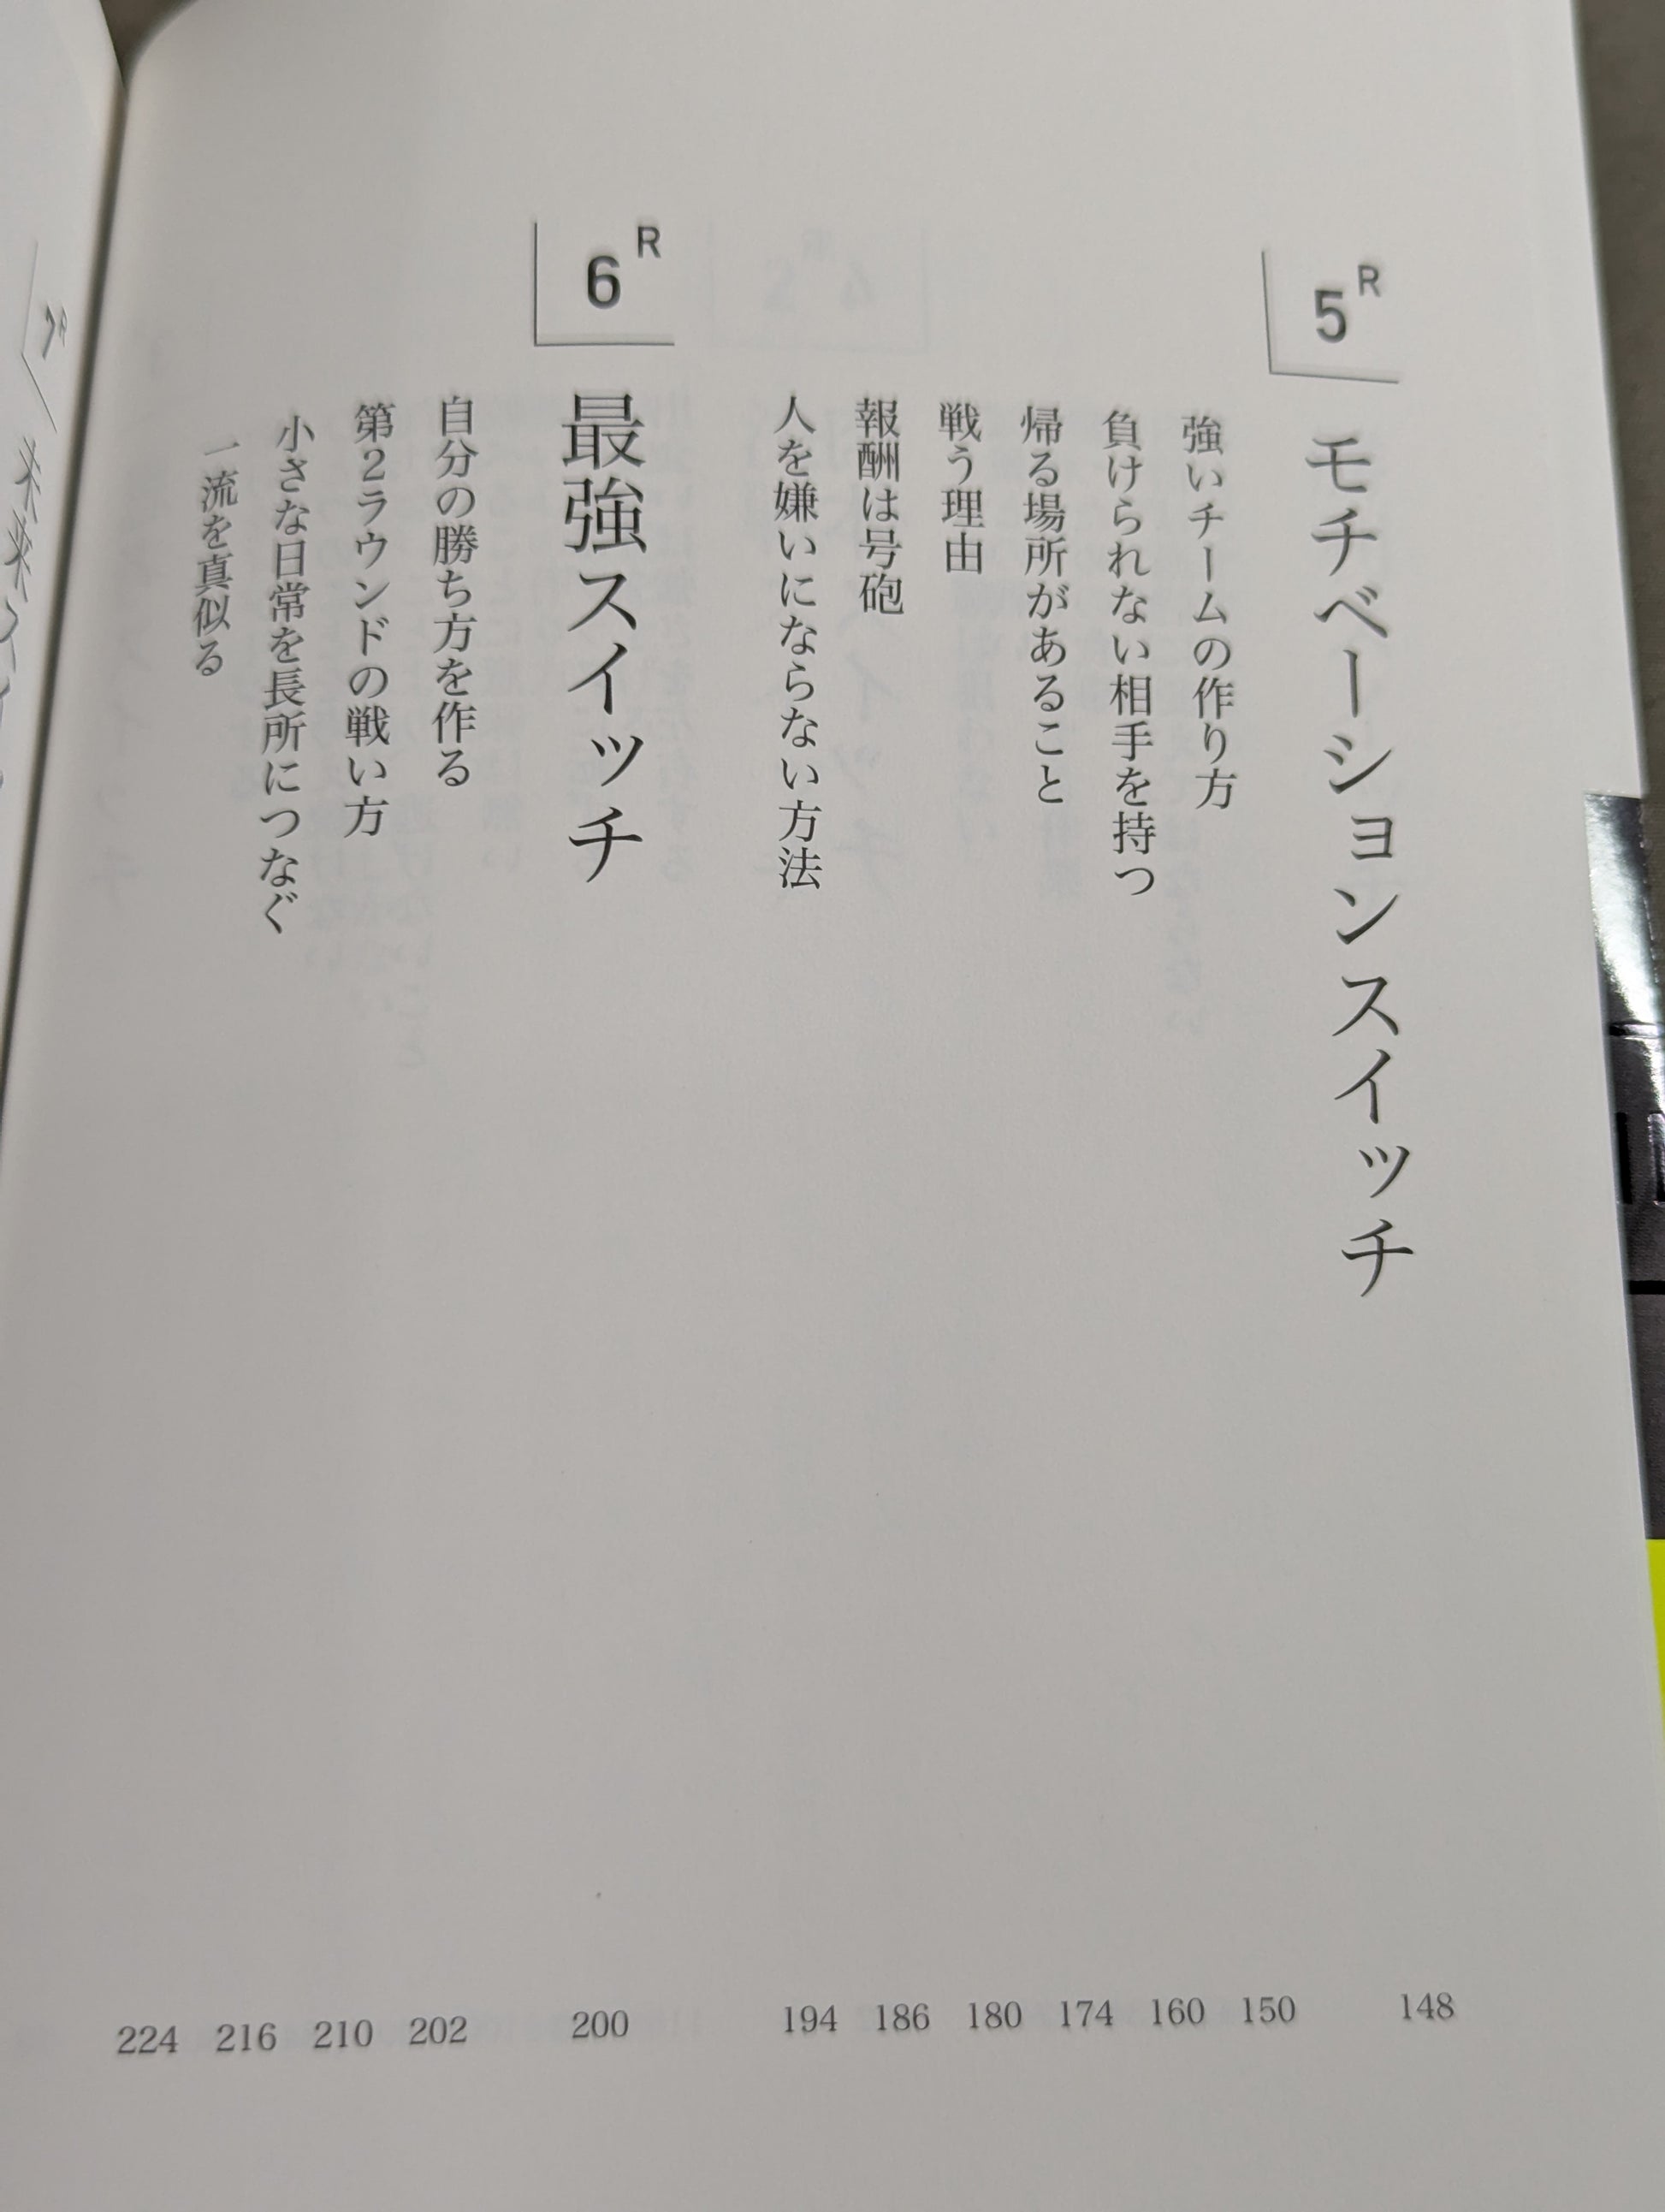 5R
モチベーションスイッチ 148
強いチームの作り方 150
負けられない相手を持つ 160
帰る場所があること 174
戦う理由 180
報酬は号砲 186
人を嫌いにならない方法 194
6R
最強スイッチ 200
自分の勝ち方を作る 202
第2ラウンドの戦い方 210
小さな日常を長所につなぐ 216
一流を真似る 224
7R
未来ス